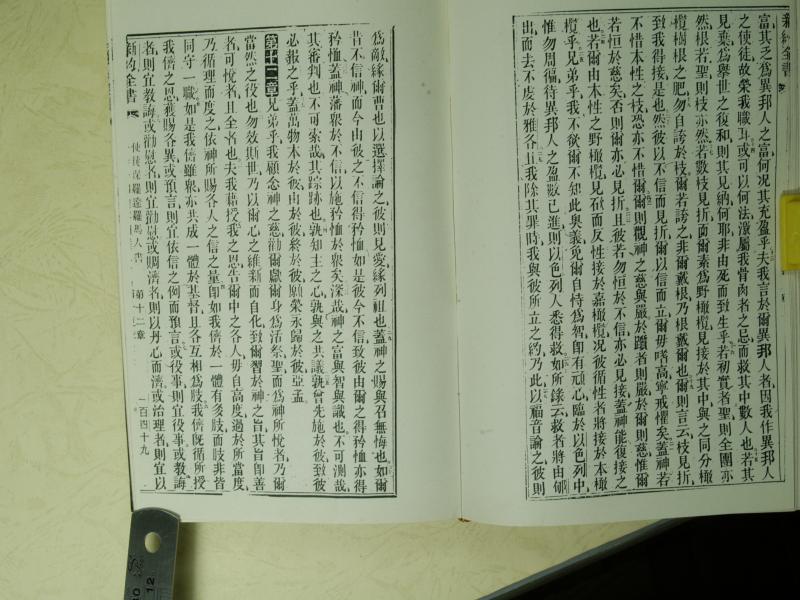 新約全書
富其乏爲異邦人之富何况其充盈乎夫我言於爾異邦人者因我作異邦人
之使徒故榮我職耳或可以何法激屬我骨肉者之忌而救其中數人也若其
見棄爲舉世之復和則其見納何耶非由死而致生乎若初實者聖則全團亦
然根若聖則枝亦然若數枝見折而爾素爲野橄欖見接於其中與之同分橄
欖樹根之肥勿自誇於枝爾若誇之非爾載根乃根載爾也爾則言云枝見折
致我得接是也然彼以不信而見折爾以信而立爾毋嗜高寧戒懼矣蓋神若
不惜本性之枝恐亦不惜爾爾則觀神之慈與嚴於躓者則嚴於爾則慈惟爾
若恒於慈矣否則爾亦必見折且彼若勿恒於不信亦必見接蓋神能復接之
也若爾由本性之野橄欖見砍而反性接於嘉橄欖况彼循性者將接於本橄
欖乎兄弟乎我不欲爾不知此奥義免爾自恃爲智卽有頑心臨於以色列中
惟勿周徧待異邦人之盈數已進則以色列人悉得救如所錄云救者將由郇
出而去不虔於雅各且我除其罪時我與彼所立之約乃此以福音論之彼則
爲敵緣爾曹也以選擇論之彼則見愛緣列祖也蓋神之賜與召無悔也如爾
昔不信神而今由彼之不信得矜恤如是彼今不信致彼由爾之得矜恤亦得
矜恤蓋神藩衆於不信以施矜恤於衆矣深哉神之富與智與識也不可測哉
其審判也不可索哉其踪跡也孰知主之心孰與之共議孰曾先施於彼致彼
必報之乎蓋萬物本於彼由於彼終於彼願榮永歸於彼亞孟
第十二章兄弟乎我顧念神之慈勸爾獻爾身爲活祭聖而爲神所悅者乃爾
當然之役也勿效斯世乃以爾心之維新而自化致爾習於神之旨其旨卽善
者可悅者且全者也夫我藉授我之恩吿爾中之各人毋自高度過於所當度
乃循理而度之依神所賜各人之信之量卽如我儕於一體有多肢而肢非皆
同守一職如是我儕雖衆亦共成一體於基督且各互相爲肢我儕旣循所授
我儕之恩獲賜各異或預言則宜依信之例而預言或役事則宜役事或教誨
者則宜教誨或勸慰者則宜勸慰或賙濟者則以丹心而濟或治理者則宜以
新約全書 使徒保羅達羅馬人書 第十二章 一百四十九
12